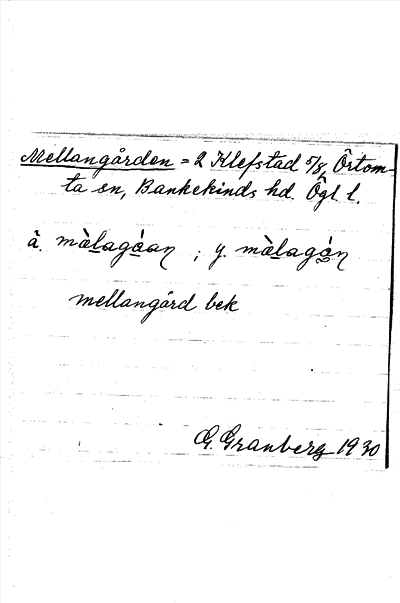 Mellangården = 2 Klefstad 5/8, Örtom-
ta sn, Bankekinds hd. Ögl l.
ä. màlagáan ; y. màlagón
mellangård bek
G. Granberg 1930